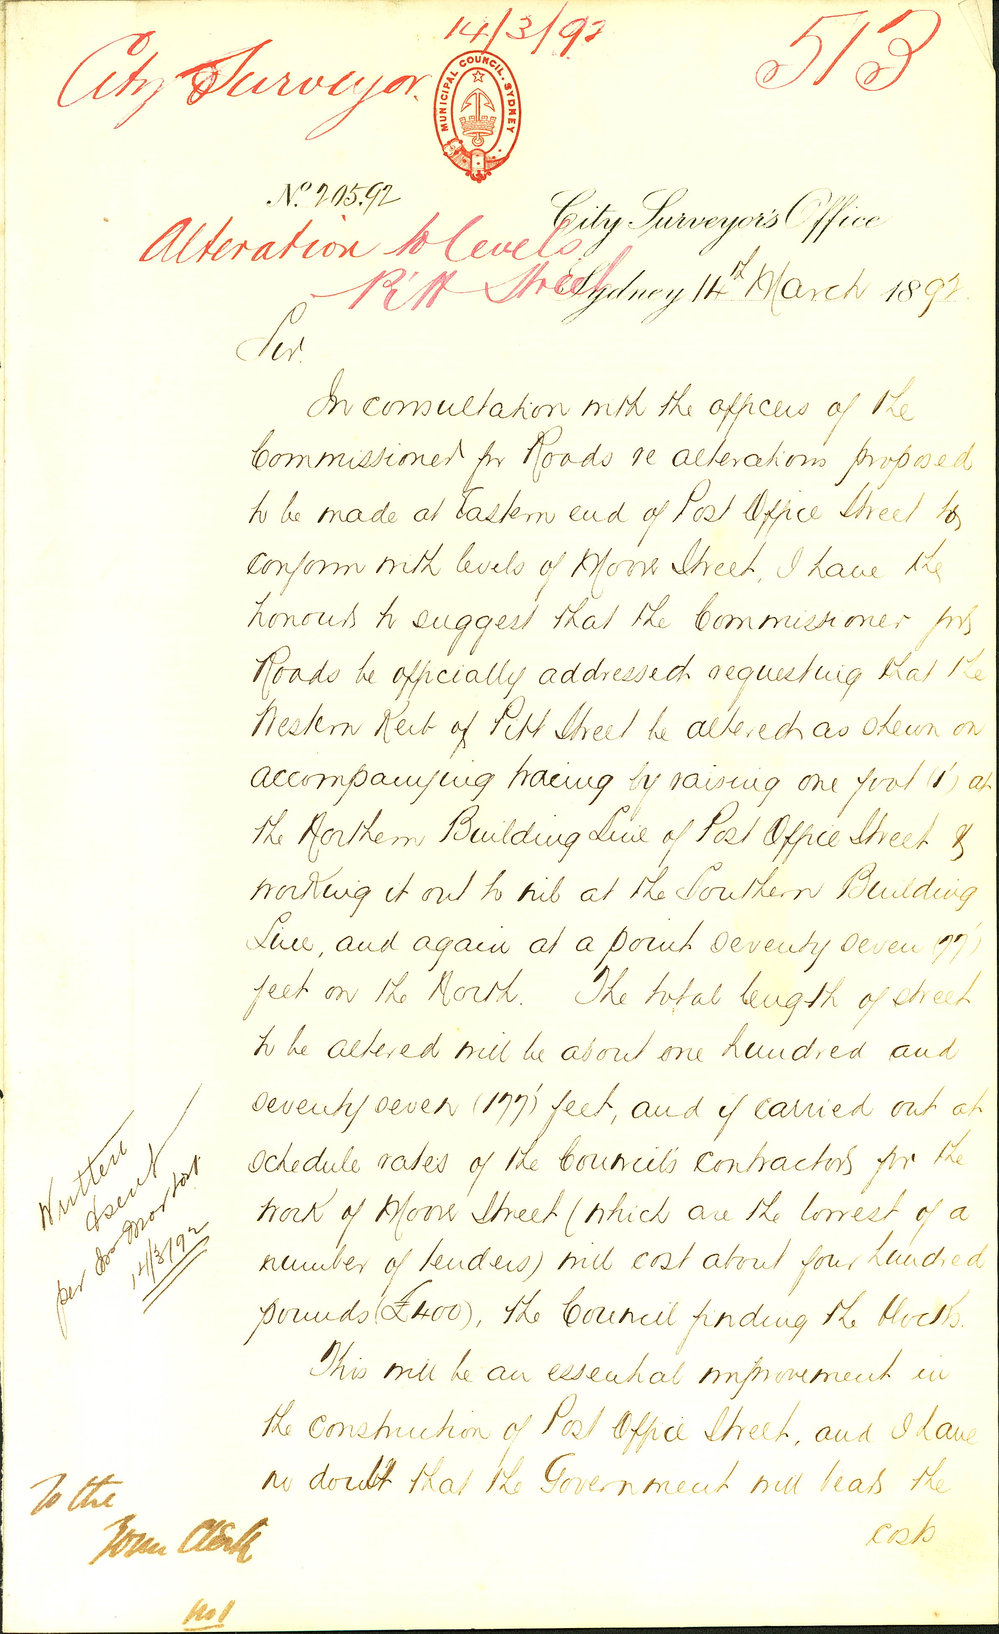 14/3/92
City Surveyor.
513
MUNICIPAL COUNCIL. SYDNEY
No. 205.92
City Surveyor's Office
Alteration to levels
Pitt Street
Sydney 14th March 1892.
Sir.
In consultation with the officers of the
Commissioner for Roads re alterations proposed
to be made at Eastern end of Post Office Street to
conform with levels of Moore Street, I have the
honour to suggest that the Commissioner for
Roads be officially addressed requesting that the
Western Kerb of Pitt Street be altered as shewn on
accompanying tracing by raising one foot (1') at
the Northern Building Line of Post Office Street &
working it out to nil at the Southern Building
Line, and again at a point seventy seven (77')
feet on the North. The total length of street
to be altered will be about one hundred and
seventy seven (177') feet, and if carried out at
schedule rates of the Council's contractors for the
work of Moore Street (which are the lowest of a
number of tenders) will cost about four hundred
pounds (£400), the Council finding the blocks.
This will be an essential improvement in
the construction of Post Office Street, and I have
no doubt that the Government will bear the
cost
Written
& sent
per Mortort
14/3/92
To the
Town Clerk
No 1